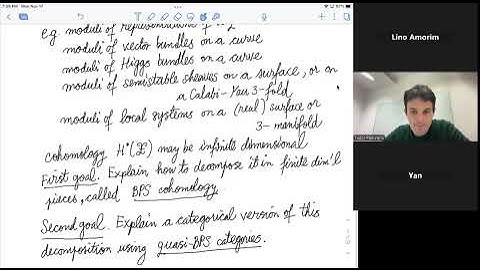 e.g. moduli of representations of
moduli of vector bundles on a curve
moduli of Higgs bundles on a curve
moduli of semistable sheaves on a surface, or on
a Calabi-Yau 3-fold
moduli of local systems on a (real) surface or
3-manifold
cohomology H•(X) may be infinite dimensional
First goal. Explain how to decompose it in finite dim'l
pieces, called BPS cohomology.
Second goal. Explain a categorical version of this
decomposition using quasi-BPS categories.
Lino Amorim
Yan